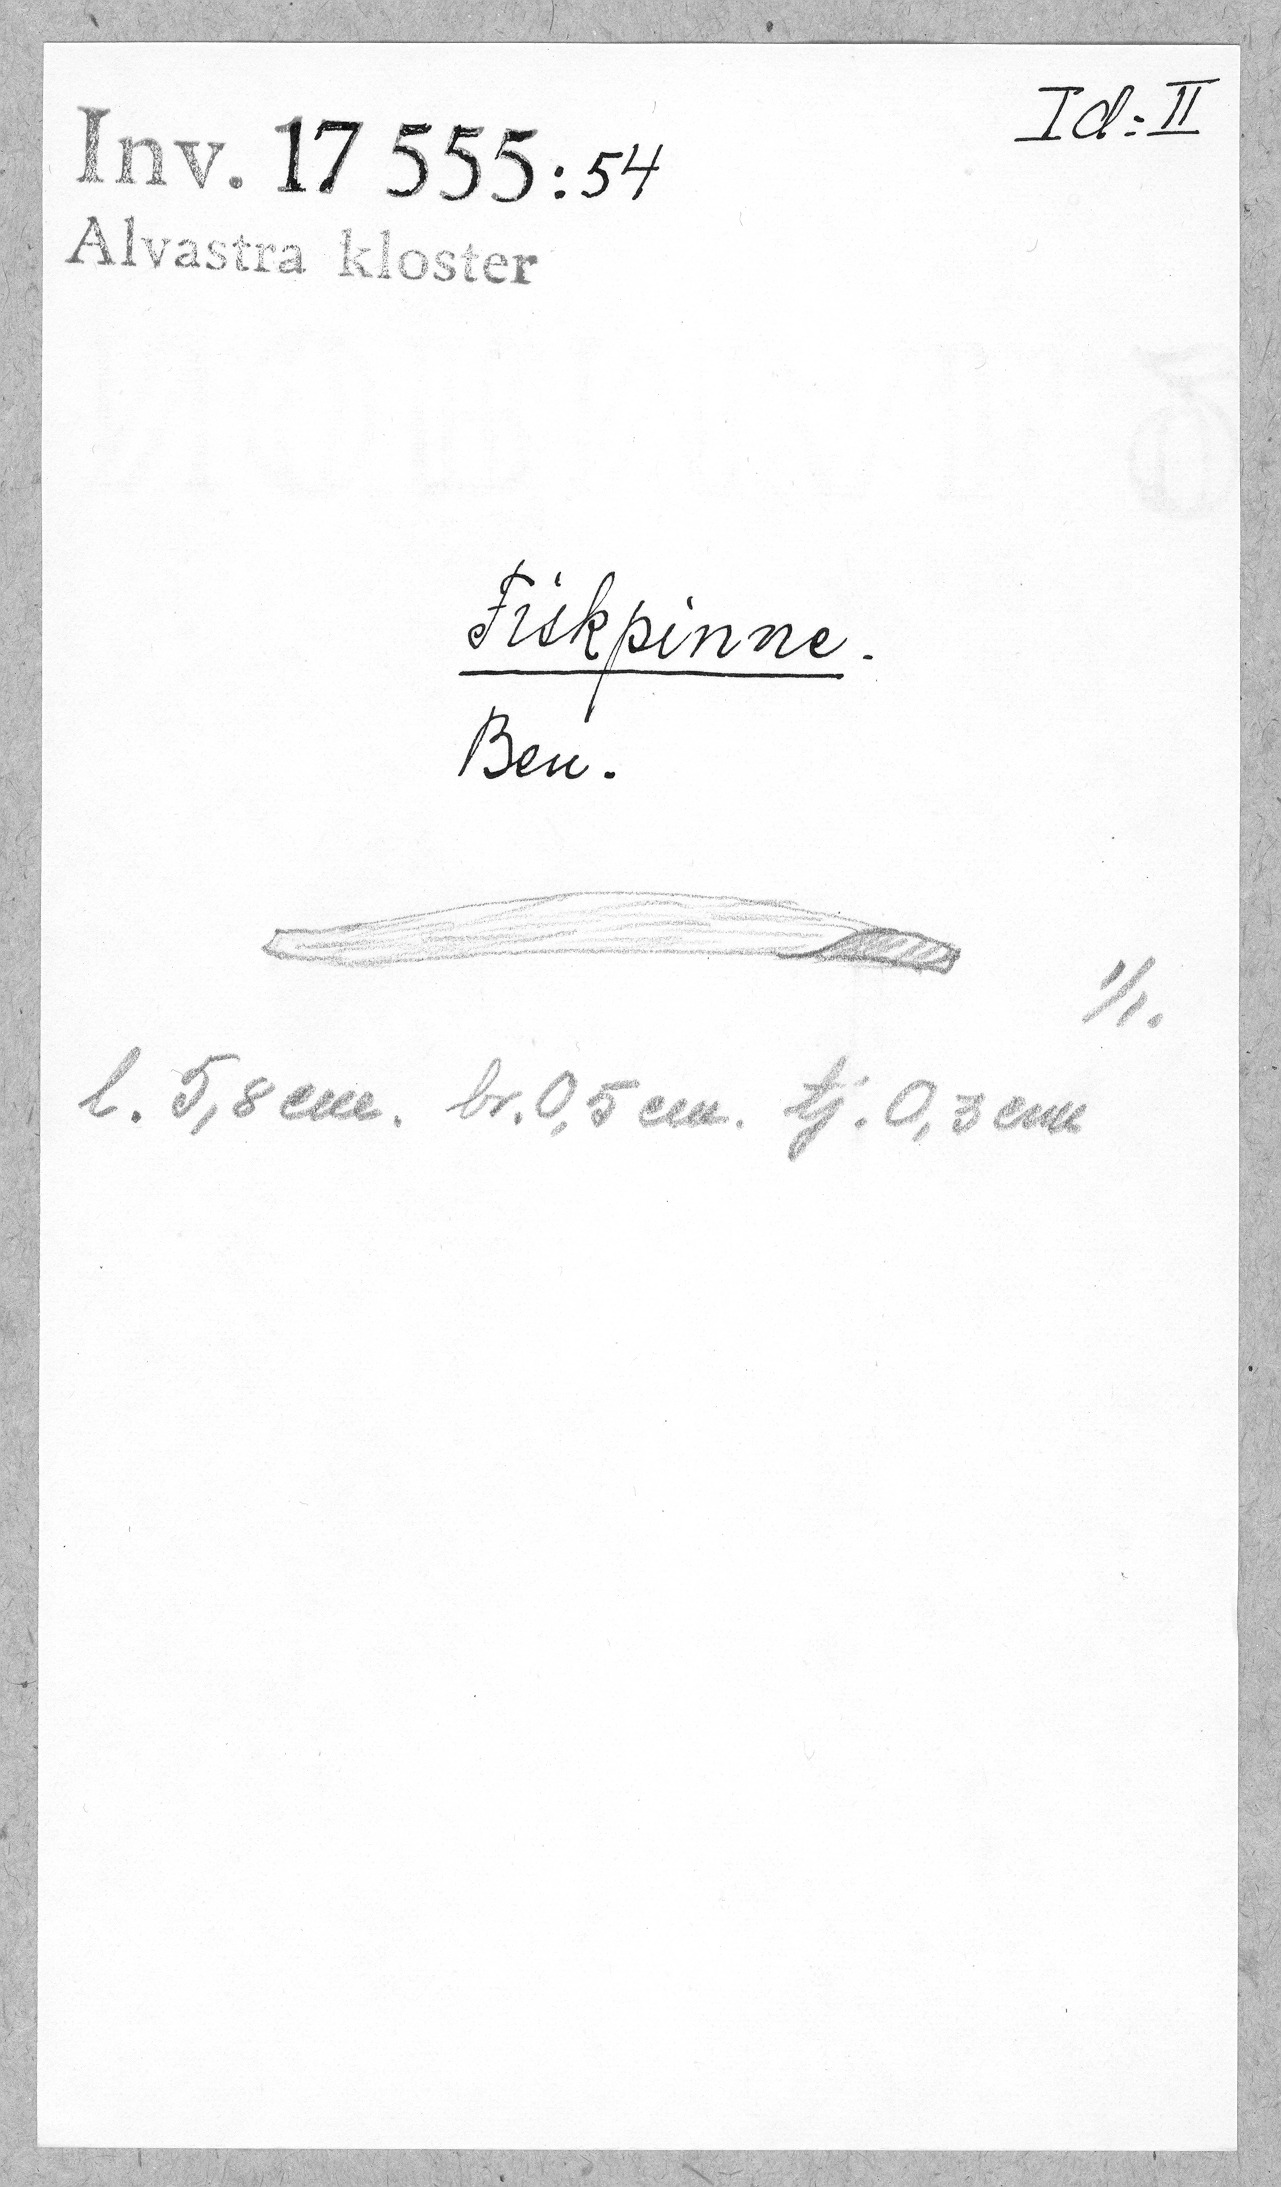 Id:II
Inv. 17 555:54
Alvastra kloster
Fiskpinne.
Ben.
1/1.
l. 5,8 cm. br. 0,5 cm. tj. 0,3 cm